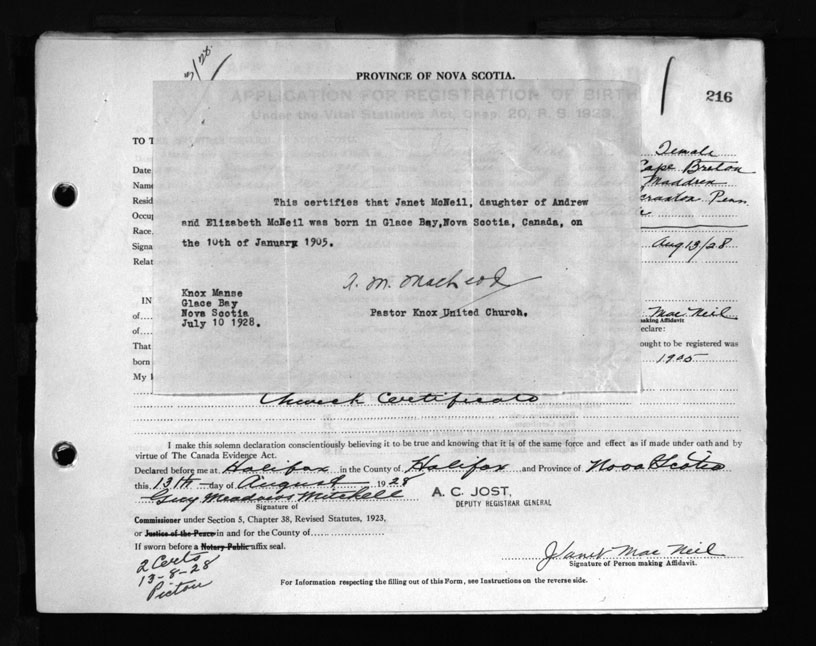 PROVINCE OF NOVA SCOTIA.
216
APPLICATION FOR REGISTRATION OF BIRTH
Under the Vital Statistics Act, Chap. 20, R. S. 1923.
TO T
Female
Date
Cape Breton
Name
Maddren
Resid
Scranton Penn.
Occup
Race
Signa
Aug 13/28
Relat
This certifies that Janet McNeil, daughter of Andrew
and Elizabeth McNeil was born in Glace Bay,Nova Scotia, Canada, on
the 10th of January 1905.
A. M. MacLeod
Knox Manse
Glace Bay
Nova Scotia
July 10 1928.
Pastor Knox United Church.
IN
of
Mac Neil
making Affidavit
of
declare:
That
ought to be registered was
born
1905
My
Church Certificate
I make this solemn declaration conscientiously believing it to be true and knowing that it is of the same force and effect as if made under oath and by
virtue of The Canada Evidence Act.
Declared before me at Halifax in the County of Halifax and Province of Nova Scotia
this 13th day of August 1928
Guy Meadows Mitchell
Signature of
A. C. JOST,
DEPUTY REGISTRAR GENERAL
Commissioner under Section 5, Chapter 38, Revised Statutes, 1923,
or Justice of the Peace in and for the County of
If sworn before a Notary Public affix seal.
2 Certs
13-8-28
Pictou
Janet Mac Neil
Signature of Person making Affidavit.
For Information respecting the filling out of this Form, see Instructions on the reverse side.